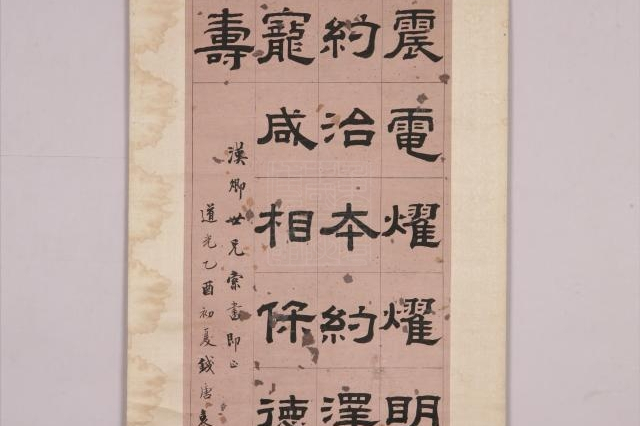 震電燿燿明
約治本約澤
寵咸相保德
壽
漢卿世兄索書即正
道光乙酉初夏錢唐